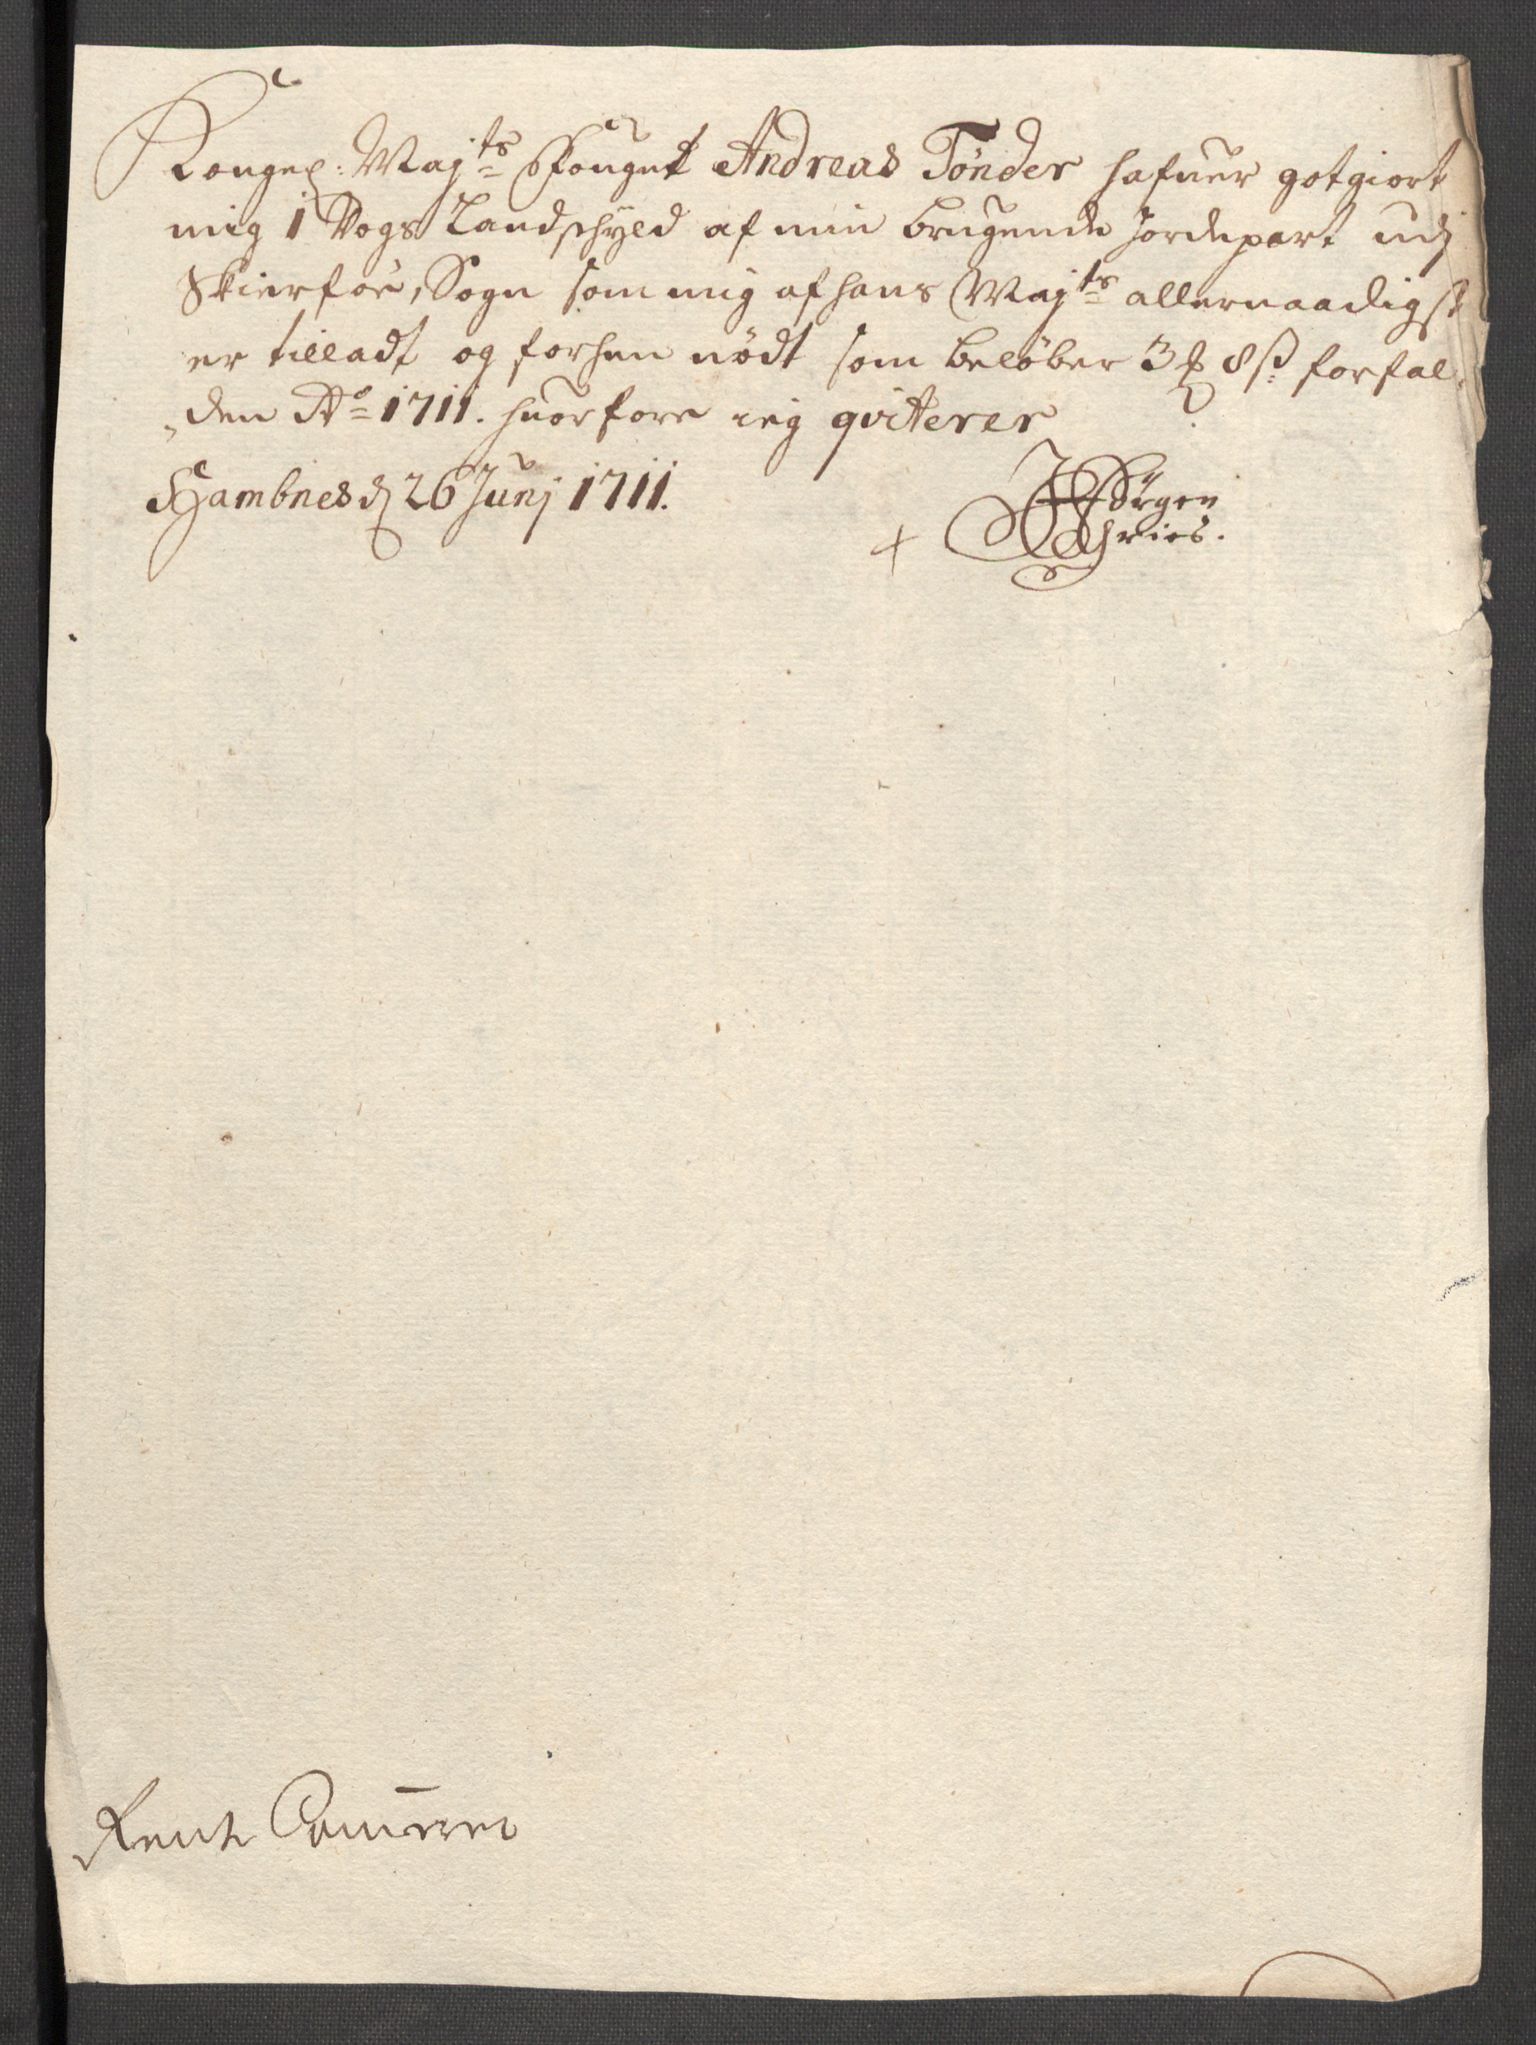 Kongel: Maj:ts Fouget Andreas Tønder hafuer gotgiort
mig 1 Vogs Landschyld af min brugende Jordepart udj
Skierføe, Sogn som mig af hans Maj:ts allernaadigst
er tilladt og forhen nödt som beløber 3 8 ß: forfal¬
den Ao 1711. huorfore ieg qviterer
Hambnes d 26 Junj 1711.
Sørgen
hries.
Rente Cammeret